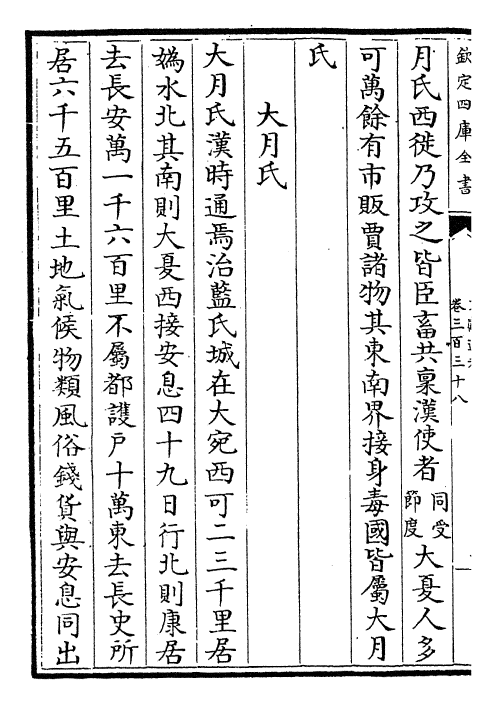 欽定四庫全書
卷三百三十八
月氏西徙乃攻之皆臣畜共稟漢使者同受節度大夏人多
可萬餘有市販賈諸物其東南界接身毒國皆屬大月
氏
大月氏
大月氏漢時通焉治藍氏城在大宛西可二三千里居
媯水北其南則大夏西接安息四十九日行北則康居
去長安萬一千六百里不屬都護戶十萬東去長史所
居六千五百里土地氣候物類風俗錢貨與安息同出